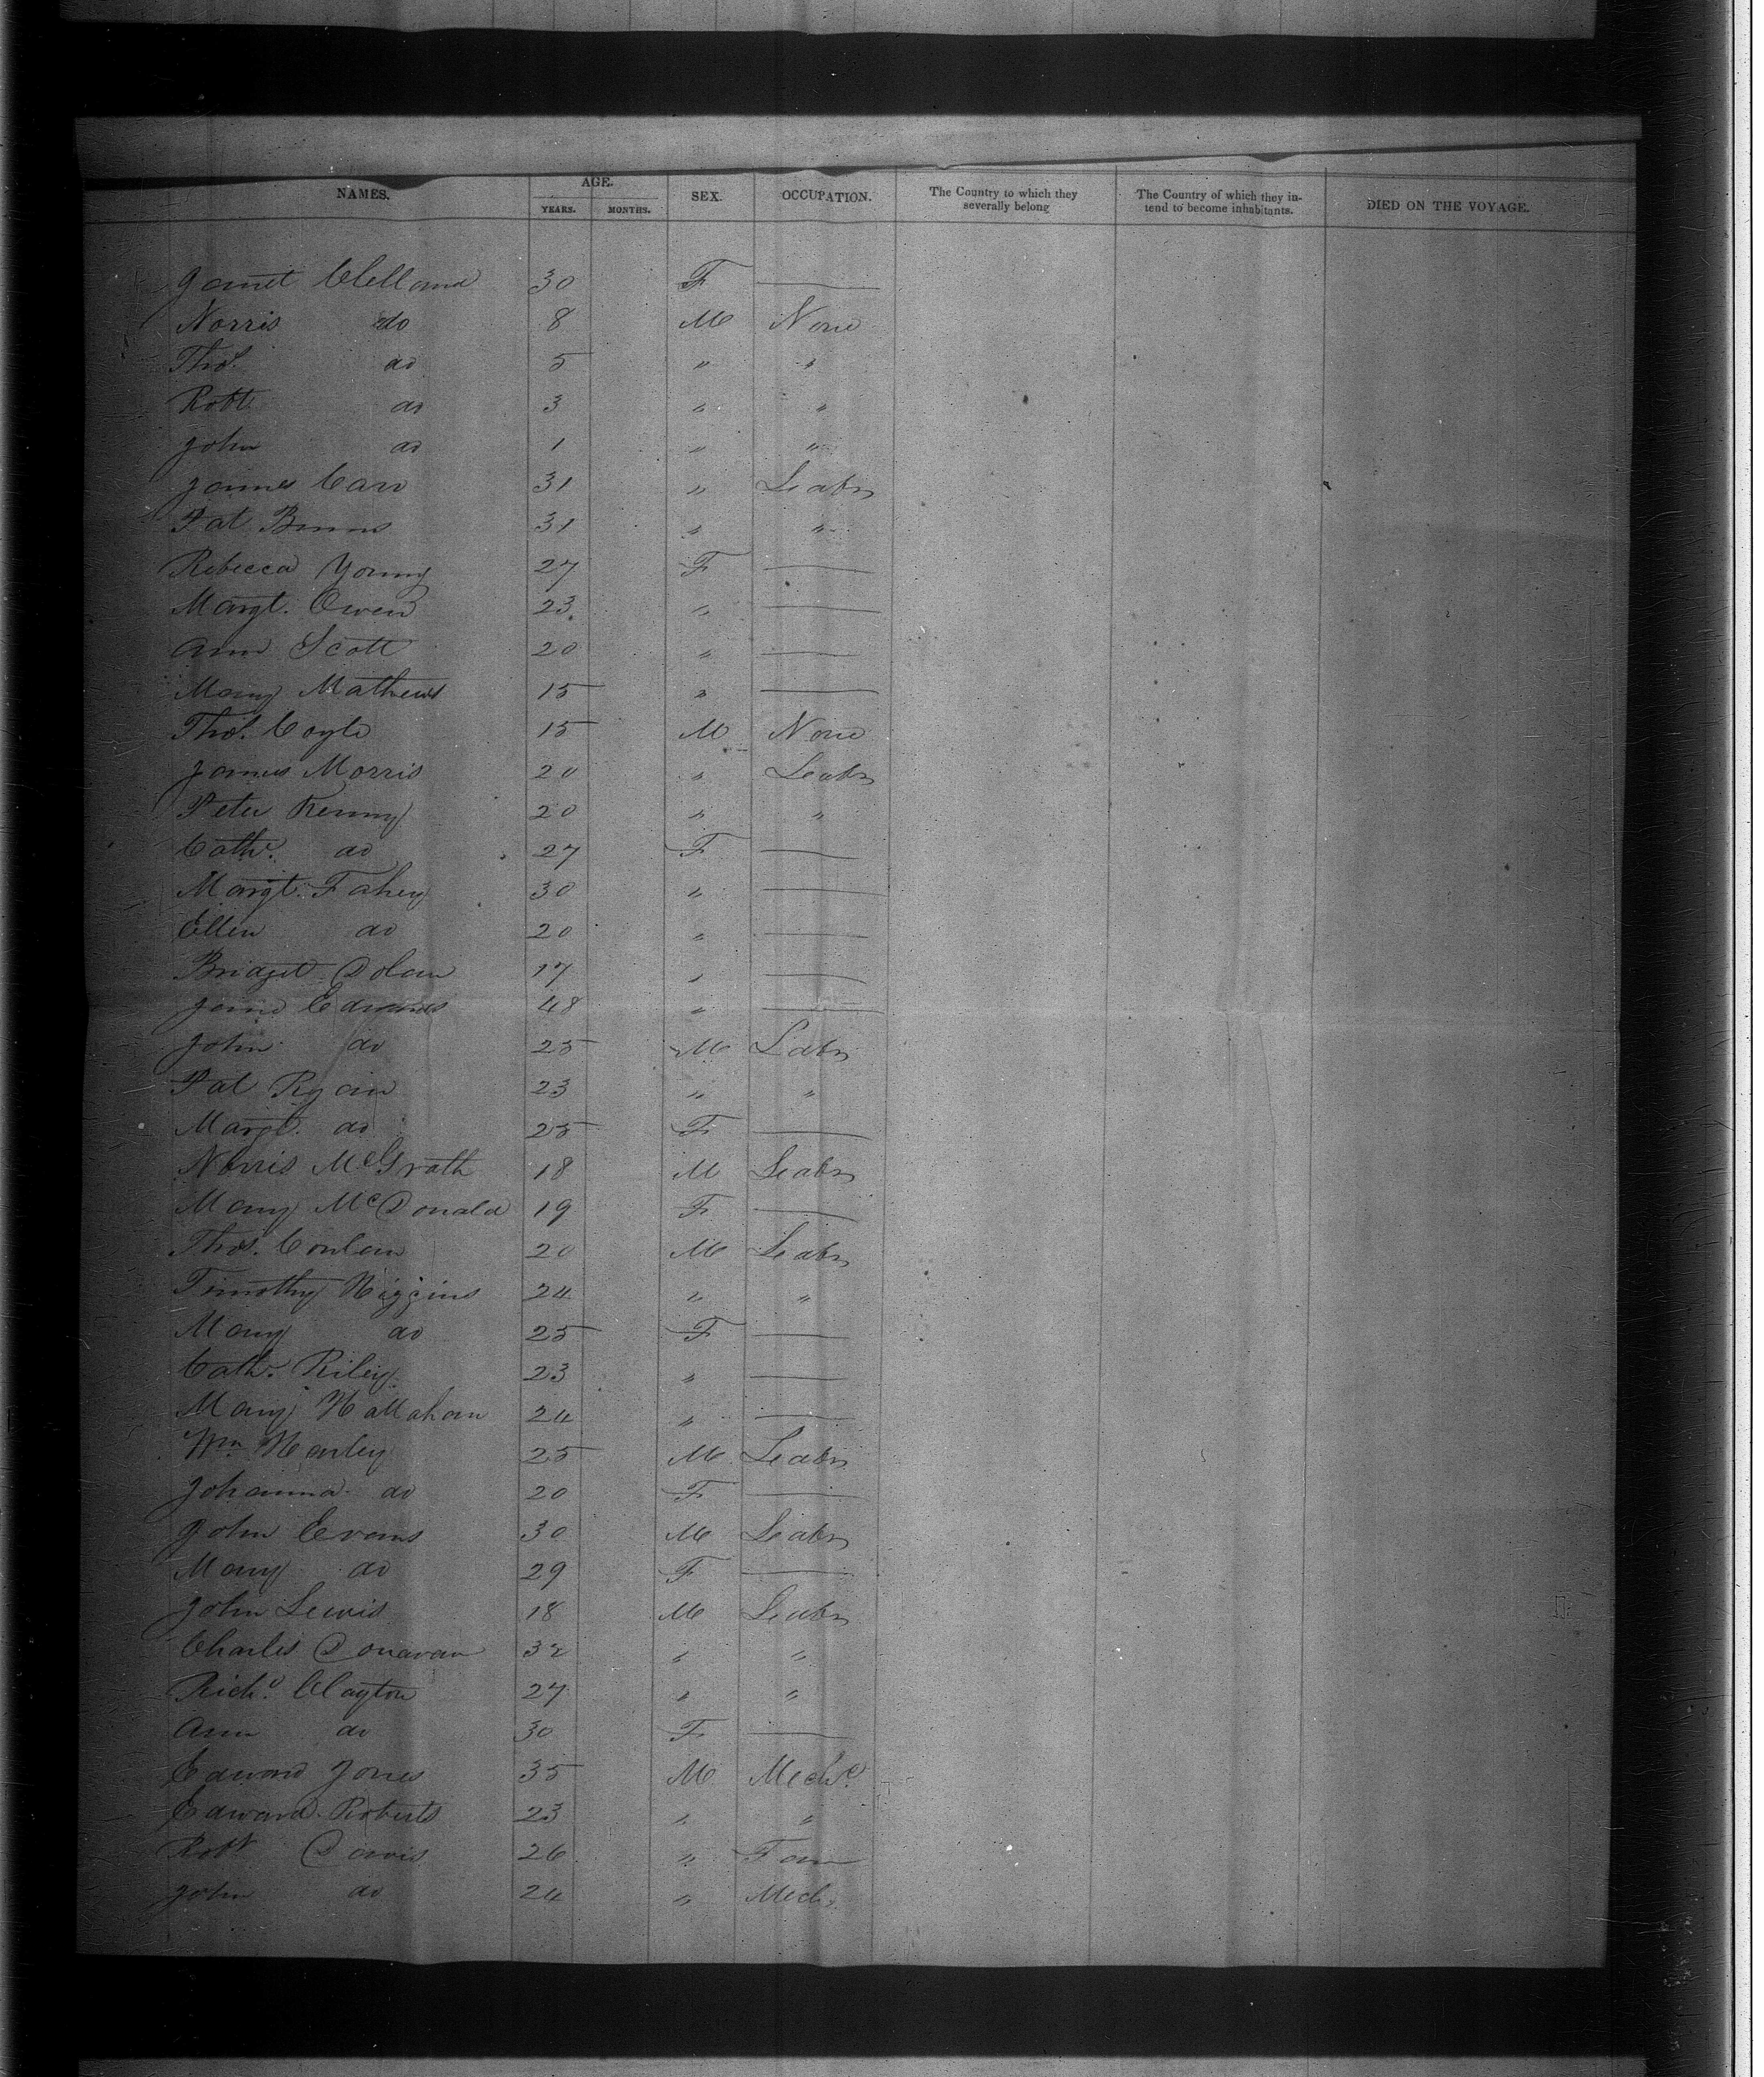 NAMES. AGE. SEX. OCCUPATION. The Country to which they severally belong The Country of which they intend to become inhabitants. DIED ON THE VOYAGE.
YEARS. MONTHS.
Janet Clelland 30 F
Norris do 8 M None
Thos. do 5 " "
Robt. do 3 " "
John do 1 " "
James Carr 31 " Labr
Pat Burns 31 " "
Rebecca Young 27 F
Margt. Owen 23 "
Ann Scott 20 "
Mary Mathews 15 "
Thos. Coyle 15 M None
James Morris 20 " Labr
Peter Kenny 20 " "
Cathe. do 27 F
Margt. Fahey 30 "
Ellen do 20 "
Bridget Dolan 17 "
Jane Edwards 48 "
John do 25 M Labr
Pat Ryan 23 " "
Margt. do 25 F
Norris McGrath 18 M Labr
Mary McDonald 19 F
Thos. Conlan 20 M Labr
Timothy Higgins 24 " "
Mary do 25 F
Cathe. Riley 23 "
Mary Hallahan 24 "
Wm Harley 25 M Labr
Johanna do 20 F
John Evans 30 M Labr
Mary do 29 F
John Lewis 18 M Labr
Charles Donavan 32 " "
Richd. Clayton 27 " "
Ann do 30 F
Edward Jones 35 M Mechc
Edward Roberts 23 " "
Robt Davis 26 " Farm
John do 24 " Mech